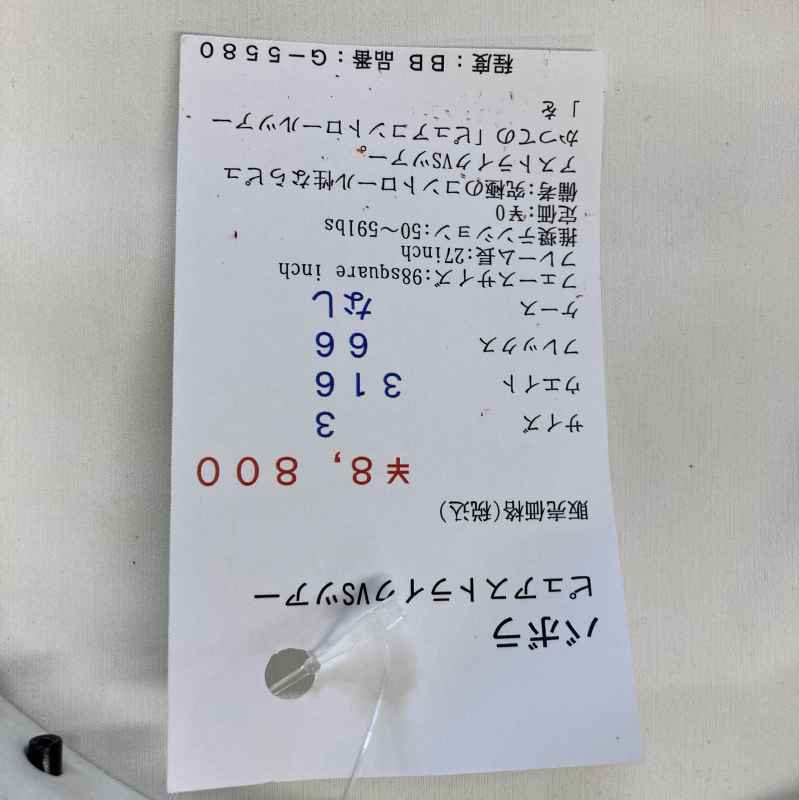 バボラ
ピュアストライクVSツアー
販売価格(税込)
¥8,800
サイズ 3
ウエイト 316
フレックス 66
ケース なし
フェースサイズ:98square inch
フレーム長:27inch
推奨テンション:50〜59lbs
定価:¥0
備考:究極のコントロール性ならピュ
アストライクVSツアー。
かつての「ピュアコントロールツアー
」を
程度:BB 品番:G-5580